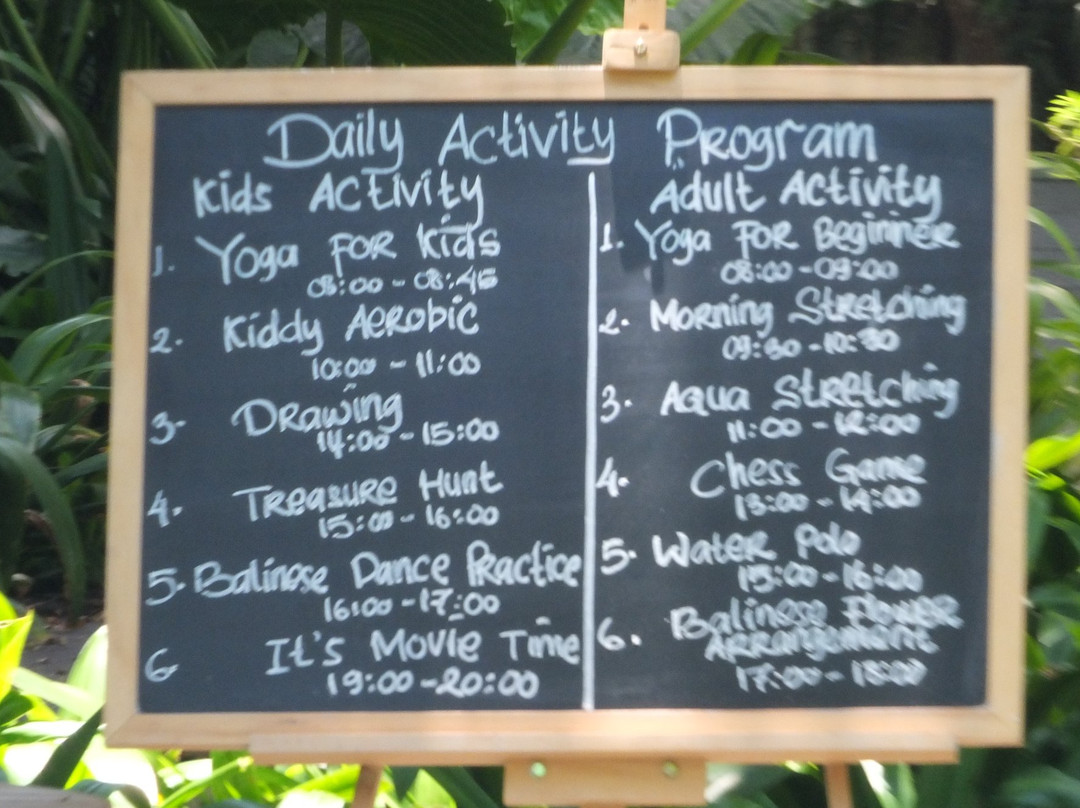 Daily Activity Program
Kids Activity
1. Yoga For Kids
08:00 - 08:45
2. Kiddy Aerobic
10:00 - 11:00
3. Drawing
14:00 - 15:00
4. Treasure Hunt
15:00 - 16:00
5. Balinese Dance Practice
16:00 - 17:00
6 It's Movie Time
19:00 - 20:00
Adult Activity
1. Yoga For Beginner
08:00 - 09:00
2. Morning Stretching
09:30 - 10:30
3. Aqua Stretching
11:00 - 12:00
4. Chess Game
13:00 - 14:00
5. Water Polo
15:00 - 16:00
6. Balinese Flower
Arrangement
17:00 - 18:00